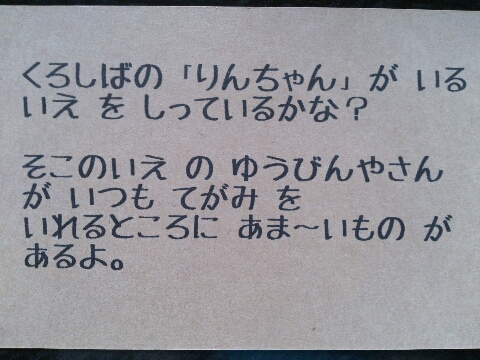 くろしばの「りんちゃん」が いる
いえ を しっているかな？
そこのいえ の ゆうびんやさん
が いつも てがみ を
いれるところに あま～いもの が
あるよ。